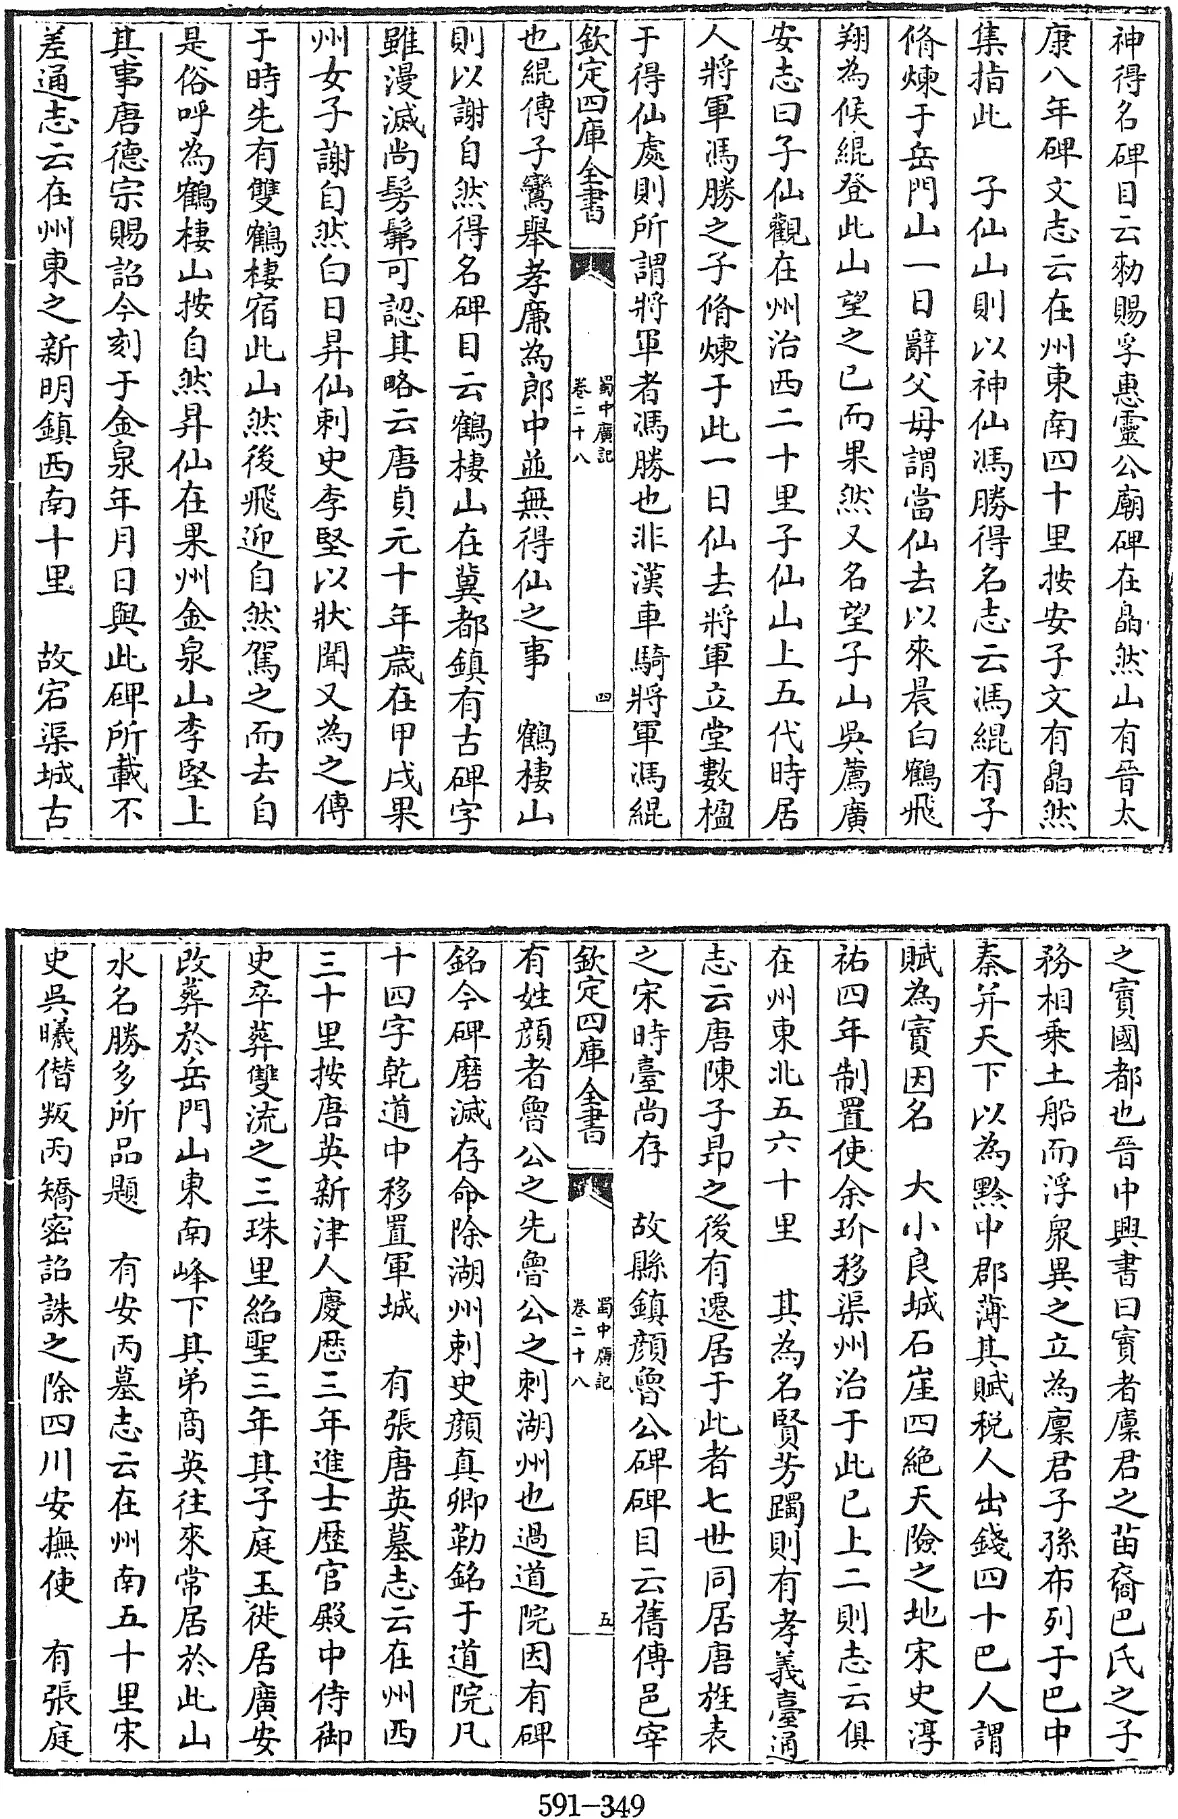 神得名碑目云勑賜孚惠靈公廟碑在皛然山有晉太
康八年碑文志云在州東南四十里按安子文有皛然
集指此　子仙山則以神仙馮勝得名志云馮緄有子
脩煉于岳門山一日辭父母謂當仙去以來晨白鶴飛
翔為候緄登此山望之已而果然又名望子山吳薦廣
安志曰子仙觀在州治西二十里子仙山上五代時居
人將軍馮勝之子脩煉于此一日仙去將軍立堂數楹
于得仙處則所謂將軍者馮勝也非漢車騎將軍馮緄
欽定四庫全書
蜀中廣記
卷二十八
四
也緄傳子鸞舉孝廉為郎中並無得仙之事　鶴棲山
則以謝自然得名碑目云鶴棲山在冀都鎮有古碑字
雖漫滅尚髣髴可認其略云唐貞元十年歲在甲戌果
州女子謝自然白日昇仙刺史李堅以狀聞又為之傳
于時先有雙鶴棲宿此山然後飛迎自然駕之而去自
是俗呼為鶴棲山按自然昇仙在果州金泉山李堅上
其事唐德宗賜詔今刻于金泉年月日與此碑所載不
差通志云在州東之新明鎮西南十里　故宕渠城古
之賨國都也晉中興書曰賨者廩君之苗裔巴氏之子
務相乗土船而浮衆異之立為廩君子孫布列于巴中
秦并天下以為黔中郡薄其賦稅人出錢四十巴人謂
賦為賨因名　大小良城石崖四絶天險之地宋史淳
祐四年制置使余玠移渠州治于此已上二則志云俱
在州東北五六十里　其為名賢芳躅則有孝義臺通
志云唐陳子昂之後有遷居于此者七世同居唐旌表
之宋時臺尚存　故縣鎮顔魯公碑碑目云舊傳邑宰
欽定四庫全書
蜀中廣記
卷二十八
五
有姓顔者魯公之先魯公之刺湖州也過道院因有碑
銘今碑磨滅存命除湖州刺史顔真卿勒銘于道院凡
十四字乾道中移置軍城　有張唐英墓志云在州西
三十里按唐英新津人慶歴三年進士歴官殿中侍御
史卒葬雙流之三珠里紹聖三年其子庭玉徙居廣安
改葬於岳門山東南峰下其弟商英往來常居於此山
水名勝多所品題　有安丙墓志云在州南五十里宋
史吳曦僭叛丙矯密詔誅之除四川安撫使　有張庭
591-349